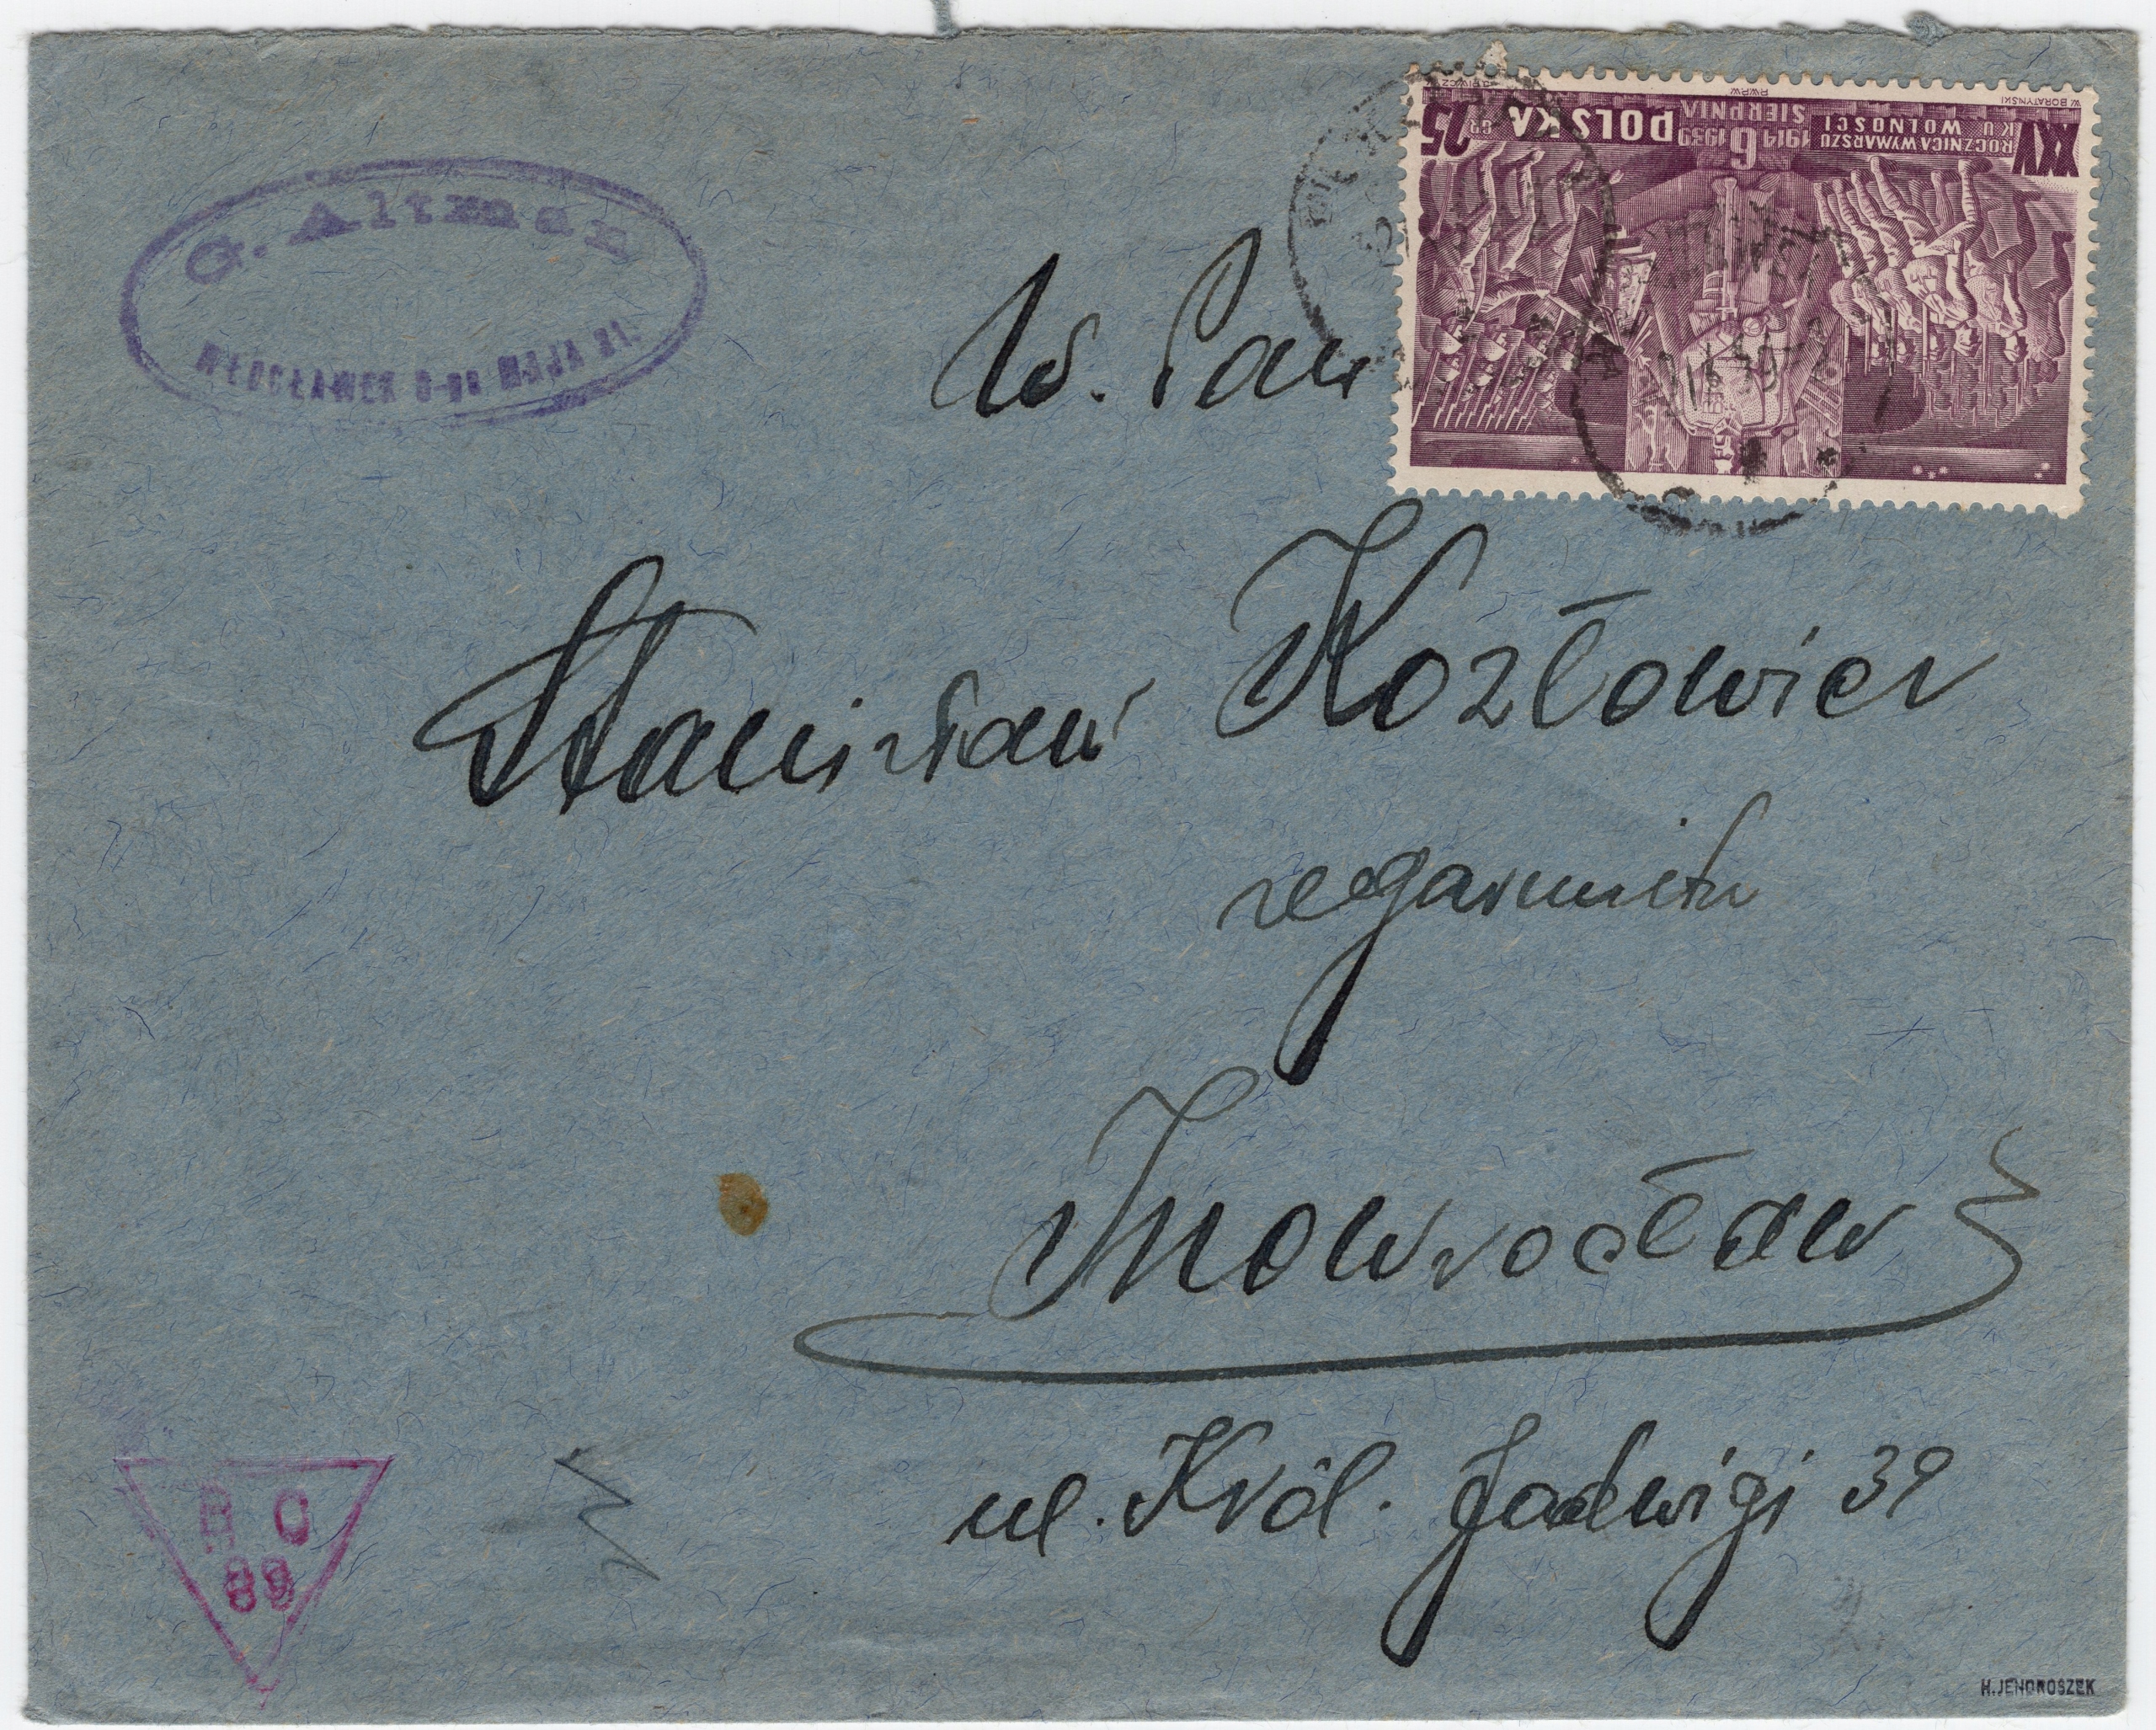 G. Altman
WŁOCŁAWEK 3-go MAJA 21.
W. Pan
XXV
ROCZNICA WYMARSZU
KU WOLNOŚCI
1914 6 1939
SIERPNIA
POLSKA
25 GR
W. BORATYŃSKI
PWPW
Stanisław Kozłowicz
zegarmistrz
Inowrocław
ul. Król. Jadwigi 39
B O
89
H. JENDROSZEK